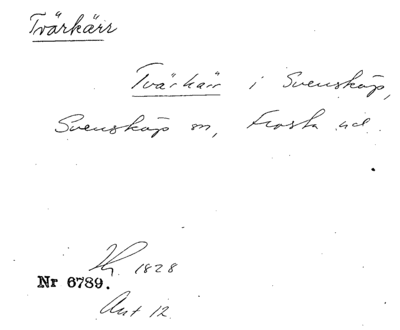 Tvärkärr
Tvärkärr i Svensköp,
Svensköp sn, Frosta hd.
1828
Nr 6789.
Ant 12